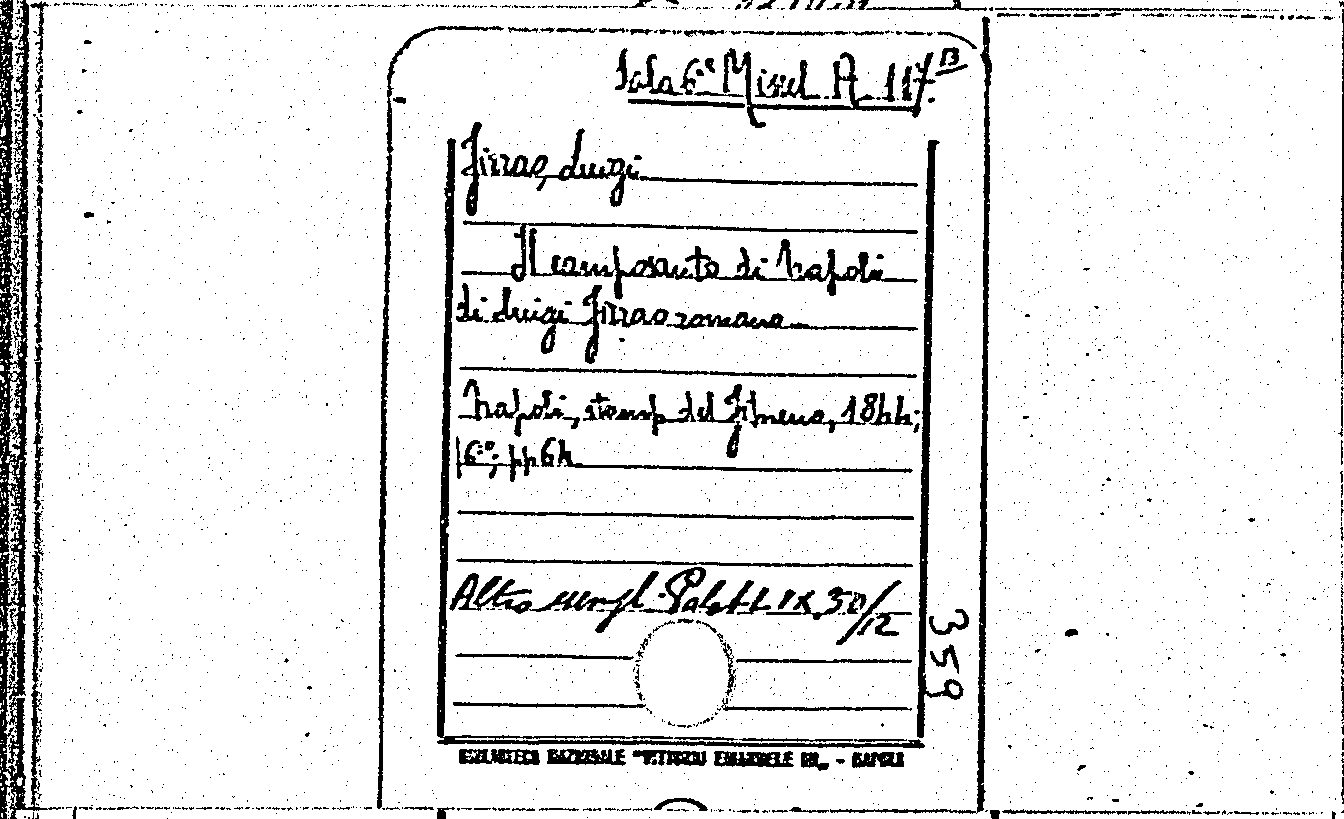 Sala 6ª Miscel. A. 117 B
Jirrao, Luigi
Il camposanto di Napoli
di Luigi Jirrao romano
Napoli, stamp. del Fibreno, 1844;
16º; pp 64
Altro esempl. Palat. LIX 30/12
359
BIBLIOTECA NAZIONALE "VITTORIO EMANUELE III„ - NAPOLI